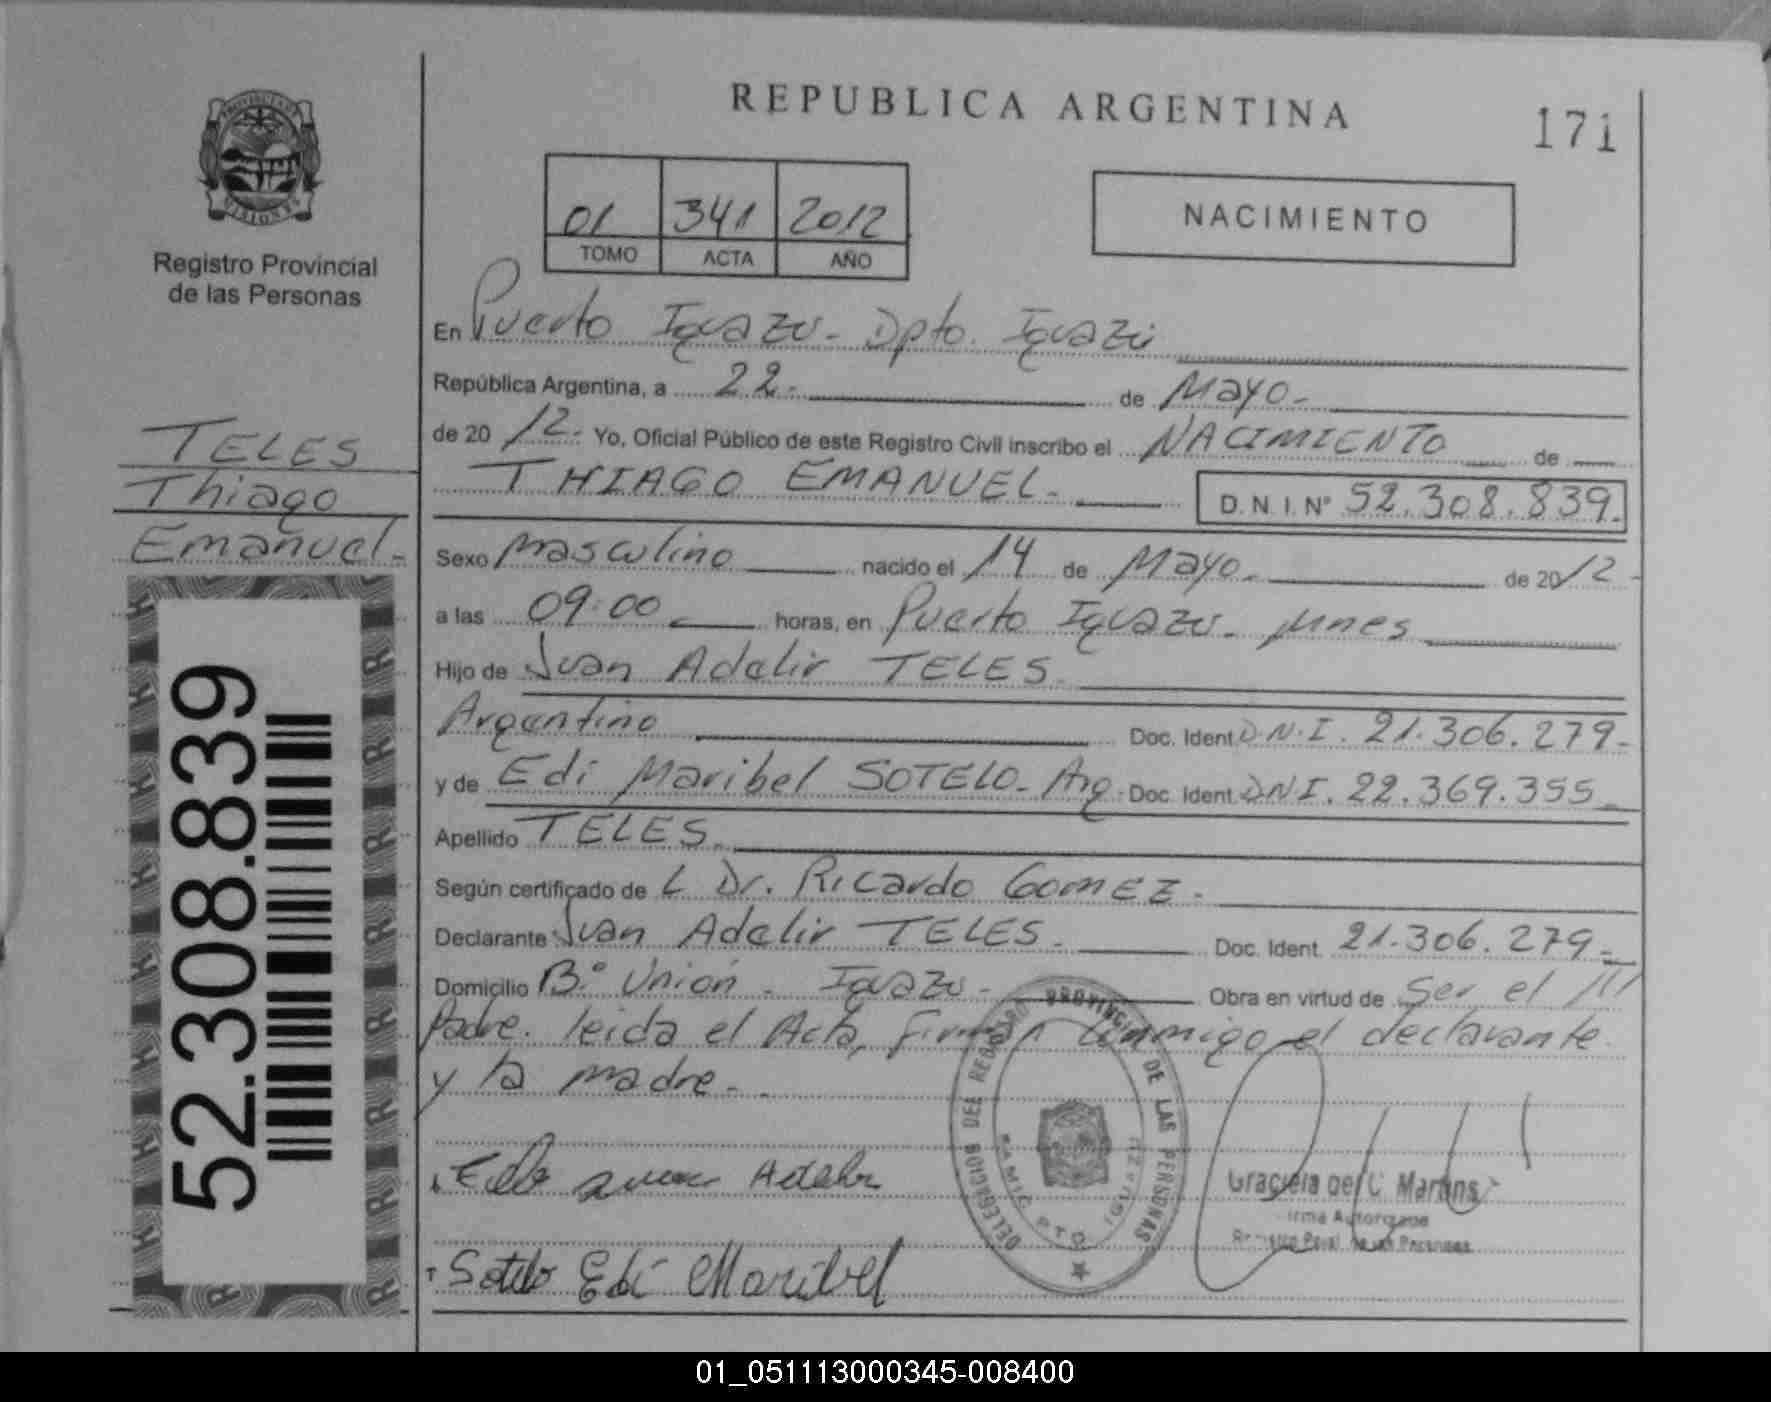 REPUBLICA ARGENTINA
171
PROVINCIA DE MISIONES
Registro Provincial
de las Personas
01 341 2012
TOMO ACTA AÑO
NACIMIENTO
En Puerto Iguazú - Dpto. Iguazú
República Argentina, a 22- de Mayo-
de 20 12- Yo, Oficial Público de este Registro Civil inscribo el NACIMIENTO de
THIAGO EMANUEL- D.N.I. Nº 52.308.839.-
TELES
Thiago
Emanuel-
Sexo masculino nacido el 14 de Mayo- de 20 12-
a las 09:00 horas, en Puerto Iguazú- Mnes
Hijo de Juan Adelir TELES-
Argentino Doc. Ident. D.N.I. 21.306.279-
y de Edi Maribel SOTELO- Arg. Doc. Ident. DNI. 22.369.355-
Apellido TELES-
Según certificado de L Dr. Ricardo GomEZ-
Declarante Juan Adelir TELES- Doc. Ident. 21.306.279-
Domicilio Bº Unión - Iguazú- Obra en virtud de Ser el
Padre. leida el Acta, firman conmigo el declarante
y la madre-
52.308.839
DELEGACION DEL REGISTRO PROVINCIAL DE LAS PERSONAS
PTO. IGUAZU
Adelir
Graciela del C. Martins
Firma Autorizada
Registro Pcial. de las Personas
Sotelo Edi Maribel
01_051113000345-008400